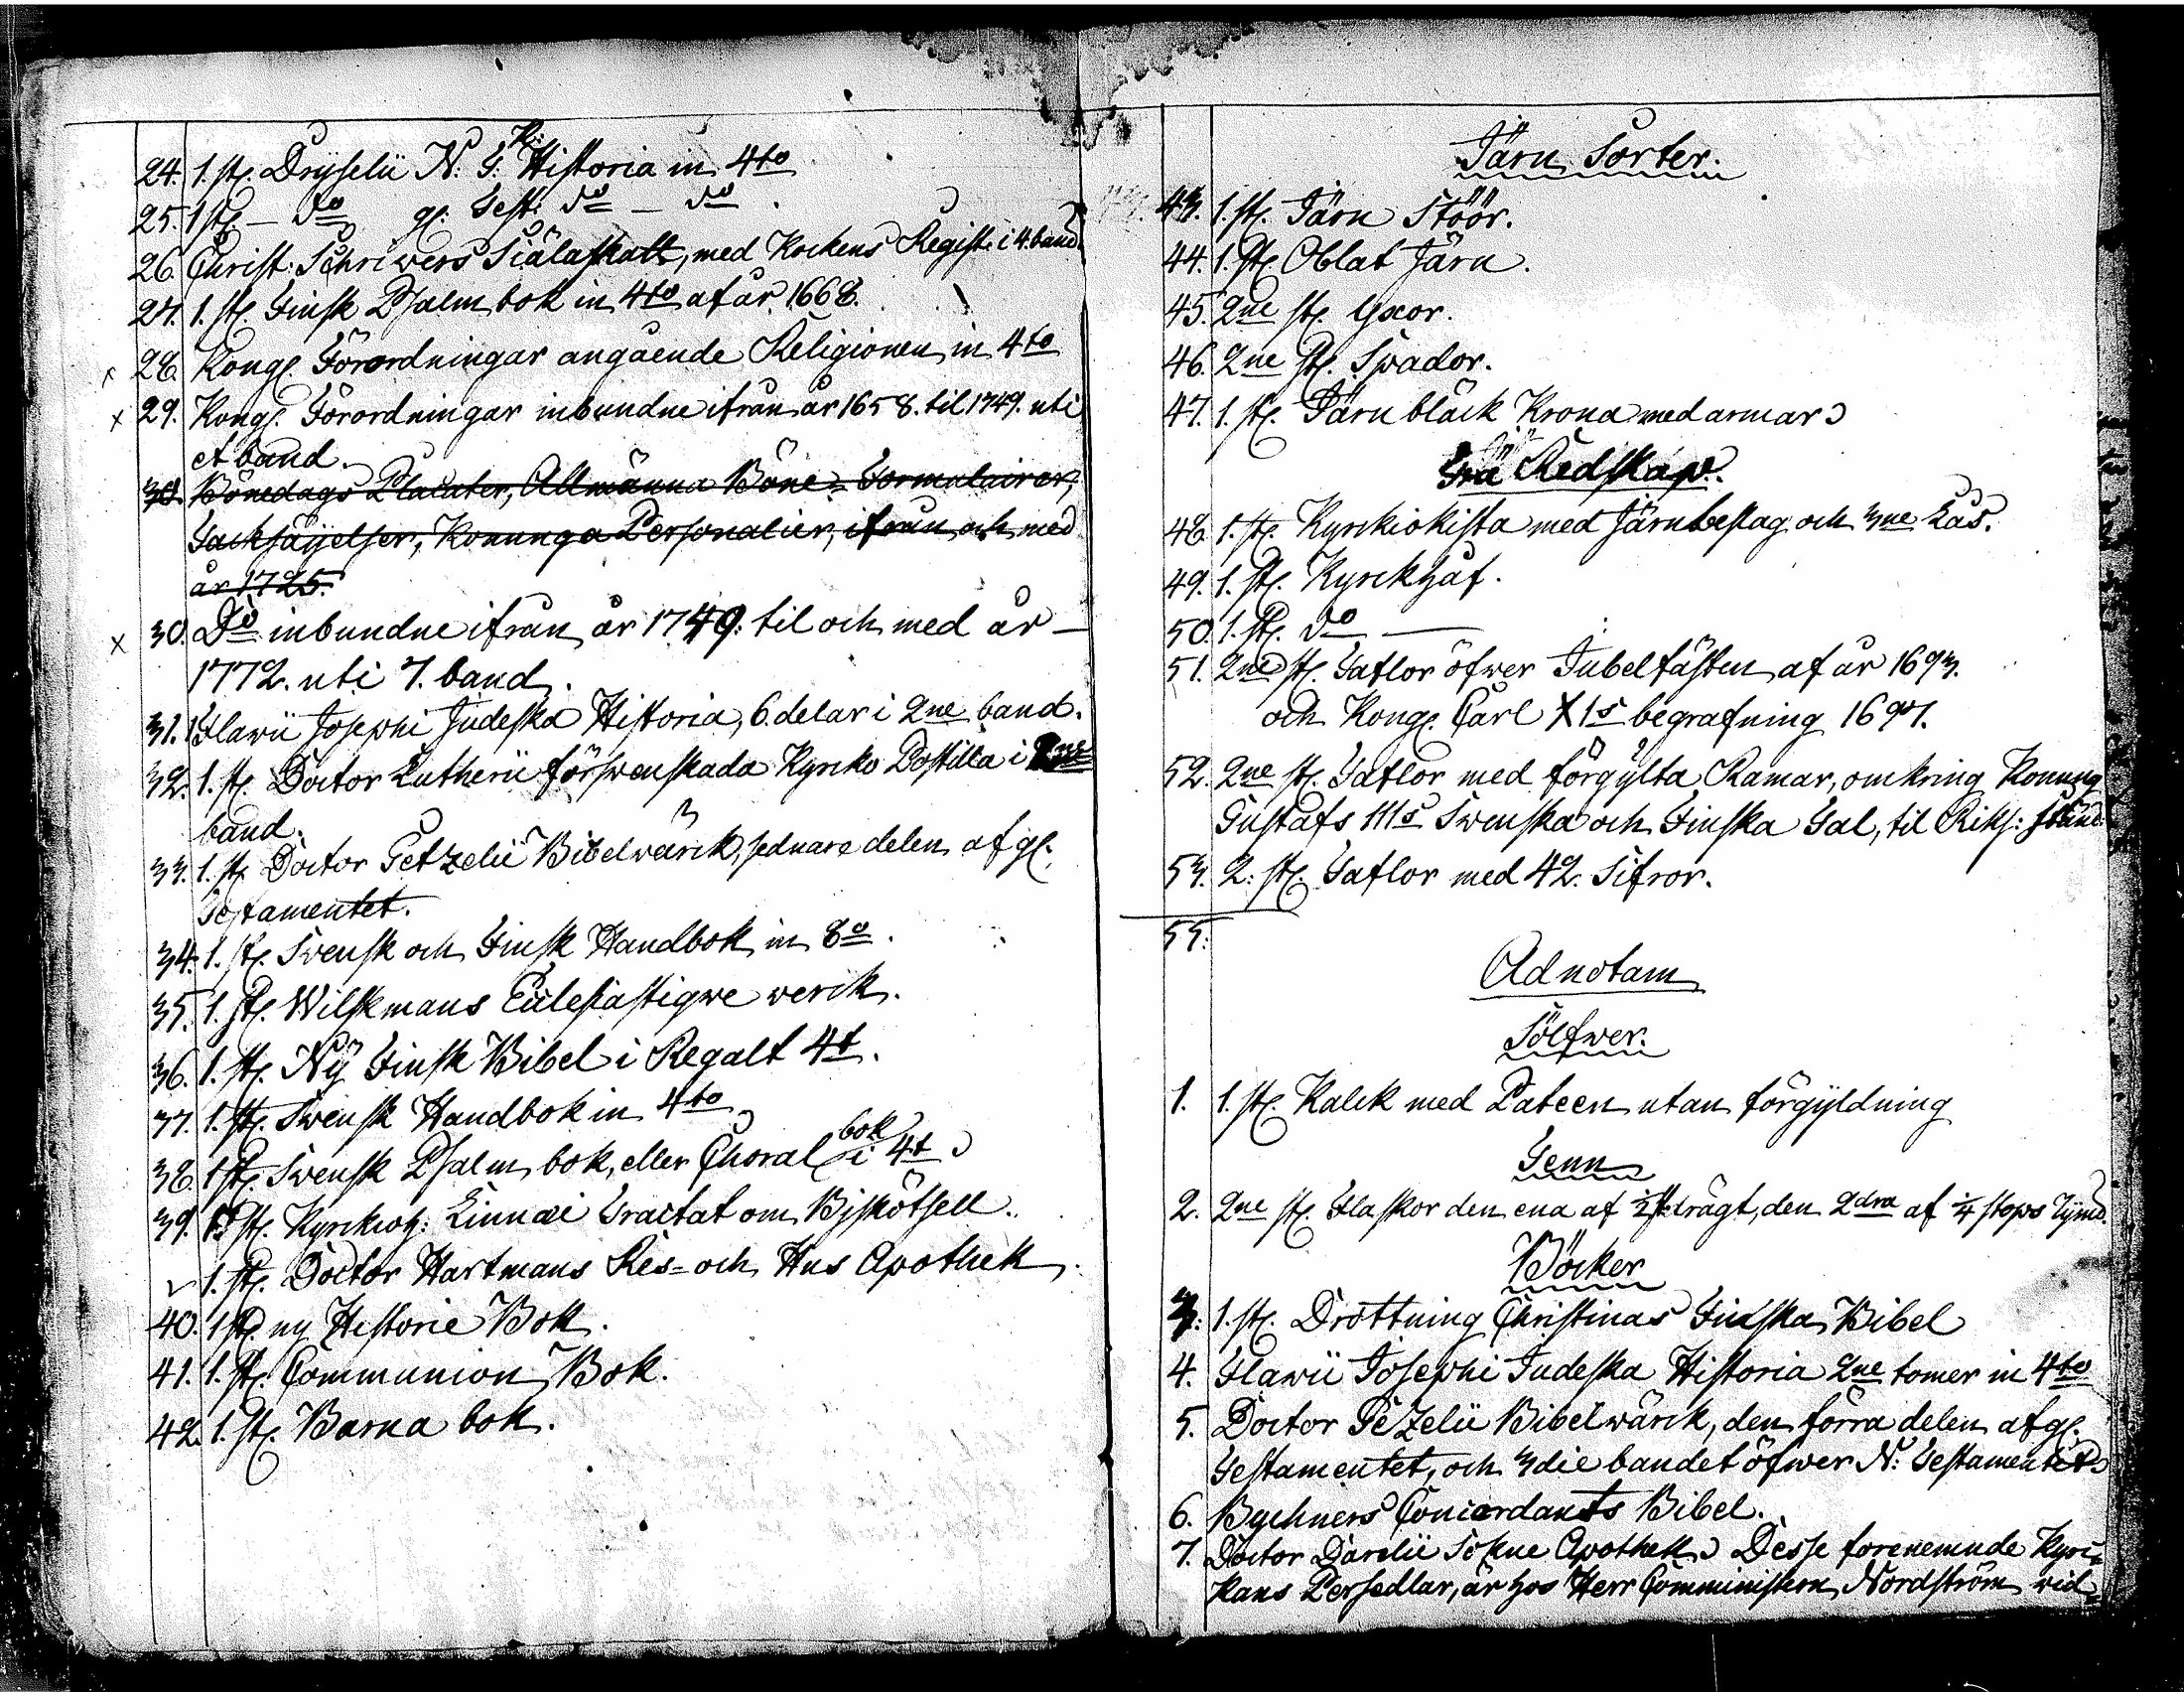 24. 1. st. Dryselii N: T: K: Historia in 4to
25. 1 st. – do gl: Test: do – do.
26. Christ: Schrivers Siälaskatt, med Kockens Regist: i 4. band.
27. 1. st. Finsk Psalm bok in 4to af år 1668.
28. Kongl. Förordningar angående Religionen in 4to
x 29. Kongl. Förordningar inbundne ifrån år 1658. til 1749. uti
et band.
30. Bönedags Placater, Allmänna Böne-Formulairer,
Tacksäyelser, Konunga Personalier, ifrån och med
år 1725.
x 30. Do inbundne ifrån år 1749. til och med år –
1772. uti 7. band.
31. 1 Flavii Josephi Judeska Historia, 6. delar i 2ne band.
32. 1. st. Doctor Lutherii förswenskada Kyrko Postilla i 2ne
band.
33. 1. st. Doctor Getzelii Bibelwärck, sednare delen af gl.
Testamentet.
34. 1. st. Swensk och Finsk Handbok in 8o.
35. 1. st. Wilskmans Eclesiastiqve verck.
36. 1. st. Nÿ Finsk Bibel i Regalt 4t.
37. 1. st. Swensk Handbok in 4to
38. 1 st. Swensk Psalm bok, eller Choral bok i 4t
39. st. Kyrckioh: Linnæi Tractat om Bjskötsell.
1. st. Doctor Hartmans Res- och Hus Apothek.
40. 1 st. ny Historie Bok.
41. 1. st. Communion Bok.
42. 1. st. Barna bok.
Järn Sorter.
43. 1. st. Järn Stöör.
44. 1. st. Oblat Järn.
45. 2ne st. Yxor.
46. 2ne st. Spador.
47. 1. st. Järnbläck Krona med armar
Trä Redskap.
48. 1. st. Kyrckiokista med Järnbeslag och 3ne Lås.
49. 1. st. Kyrckhåf.
50. 1. st. do —
51. 2ne st. Taflor öfwer Jubelfästen af år 1693.
och Kongl. Carl X1s begrafning 1697.
52. 2ne st. Taflor med förgylta Ramar, omkring Konung
Gustafs 111s Swenska och Finska Tal, til Riks: Ständ:
53. 2: st. Taflor med 42. Sifror.
55.
Adnotam
Sölfwer.
1. 1. st. Kalck med Pateen utan förgyldning
Tenn
2. 2ne st. Flaskor den ena af ½ st. drägt, den 2dra af ¼ stops rÿmd.
Böcker
3. 1. st. Drottning Christinas Finska Bibel
4. Flavii Josephi Judeska Historia 2ne tomer in 4to
5. Doctor Gezelii Bibelwärck, den förra delen af gl.
Testamentet, och 3die bandet öfwer N: Testamentet
6. Bychners Concordants Bibel.
7. Doctor Darelii Sokne Apothek. Desse forenemnde Kyrc-
kans Persedlar, är hos Herr Comministern Nordström wid